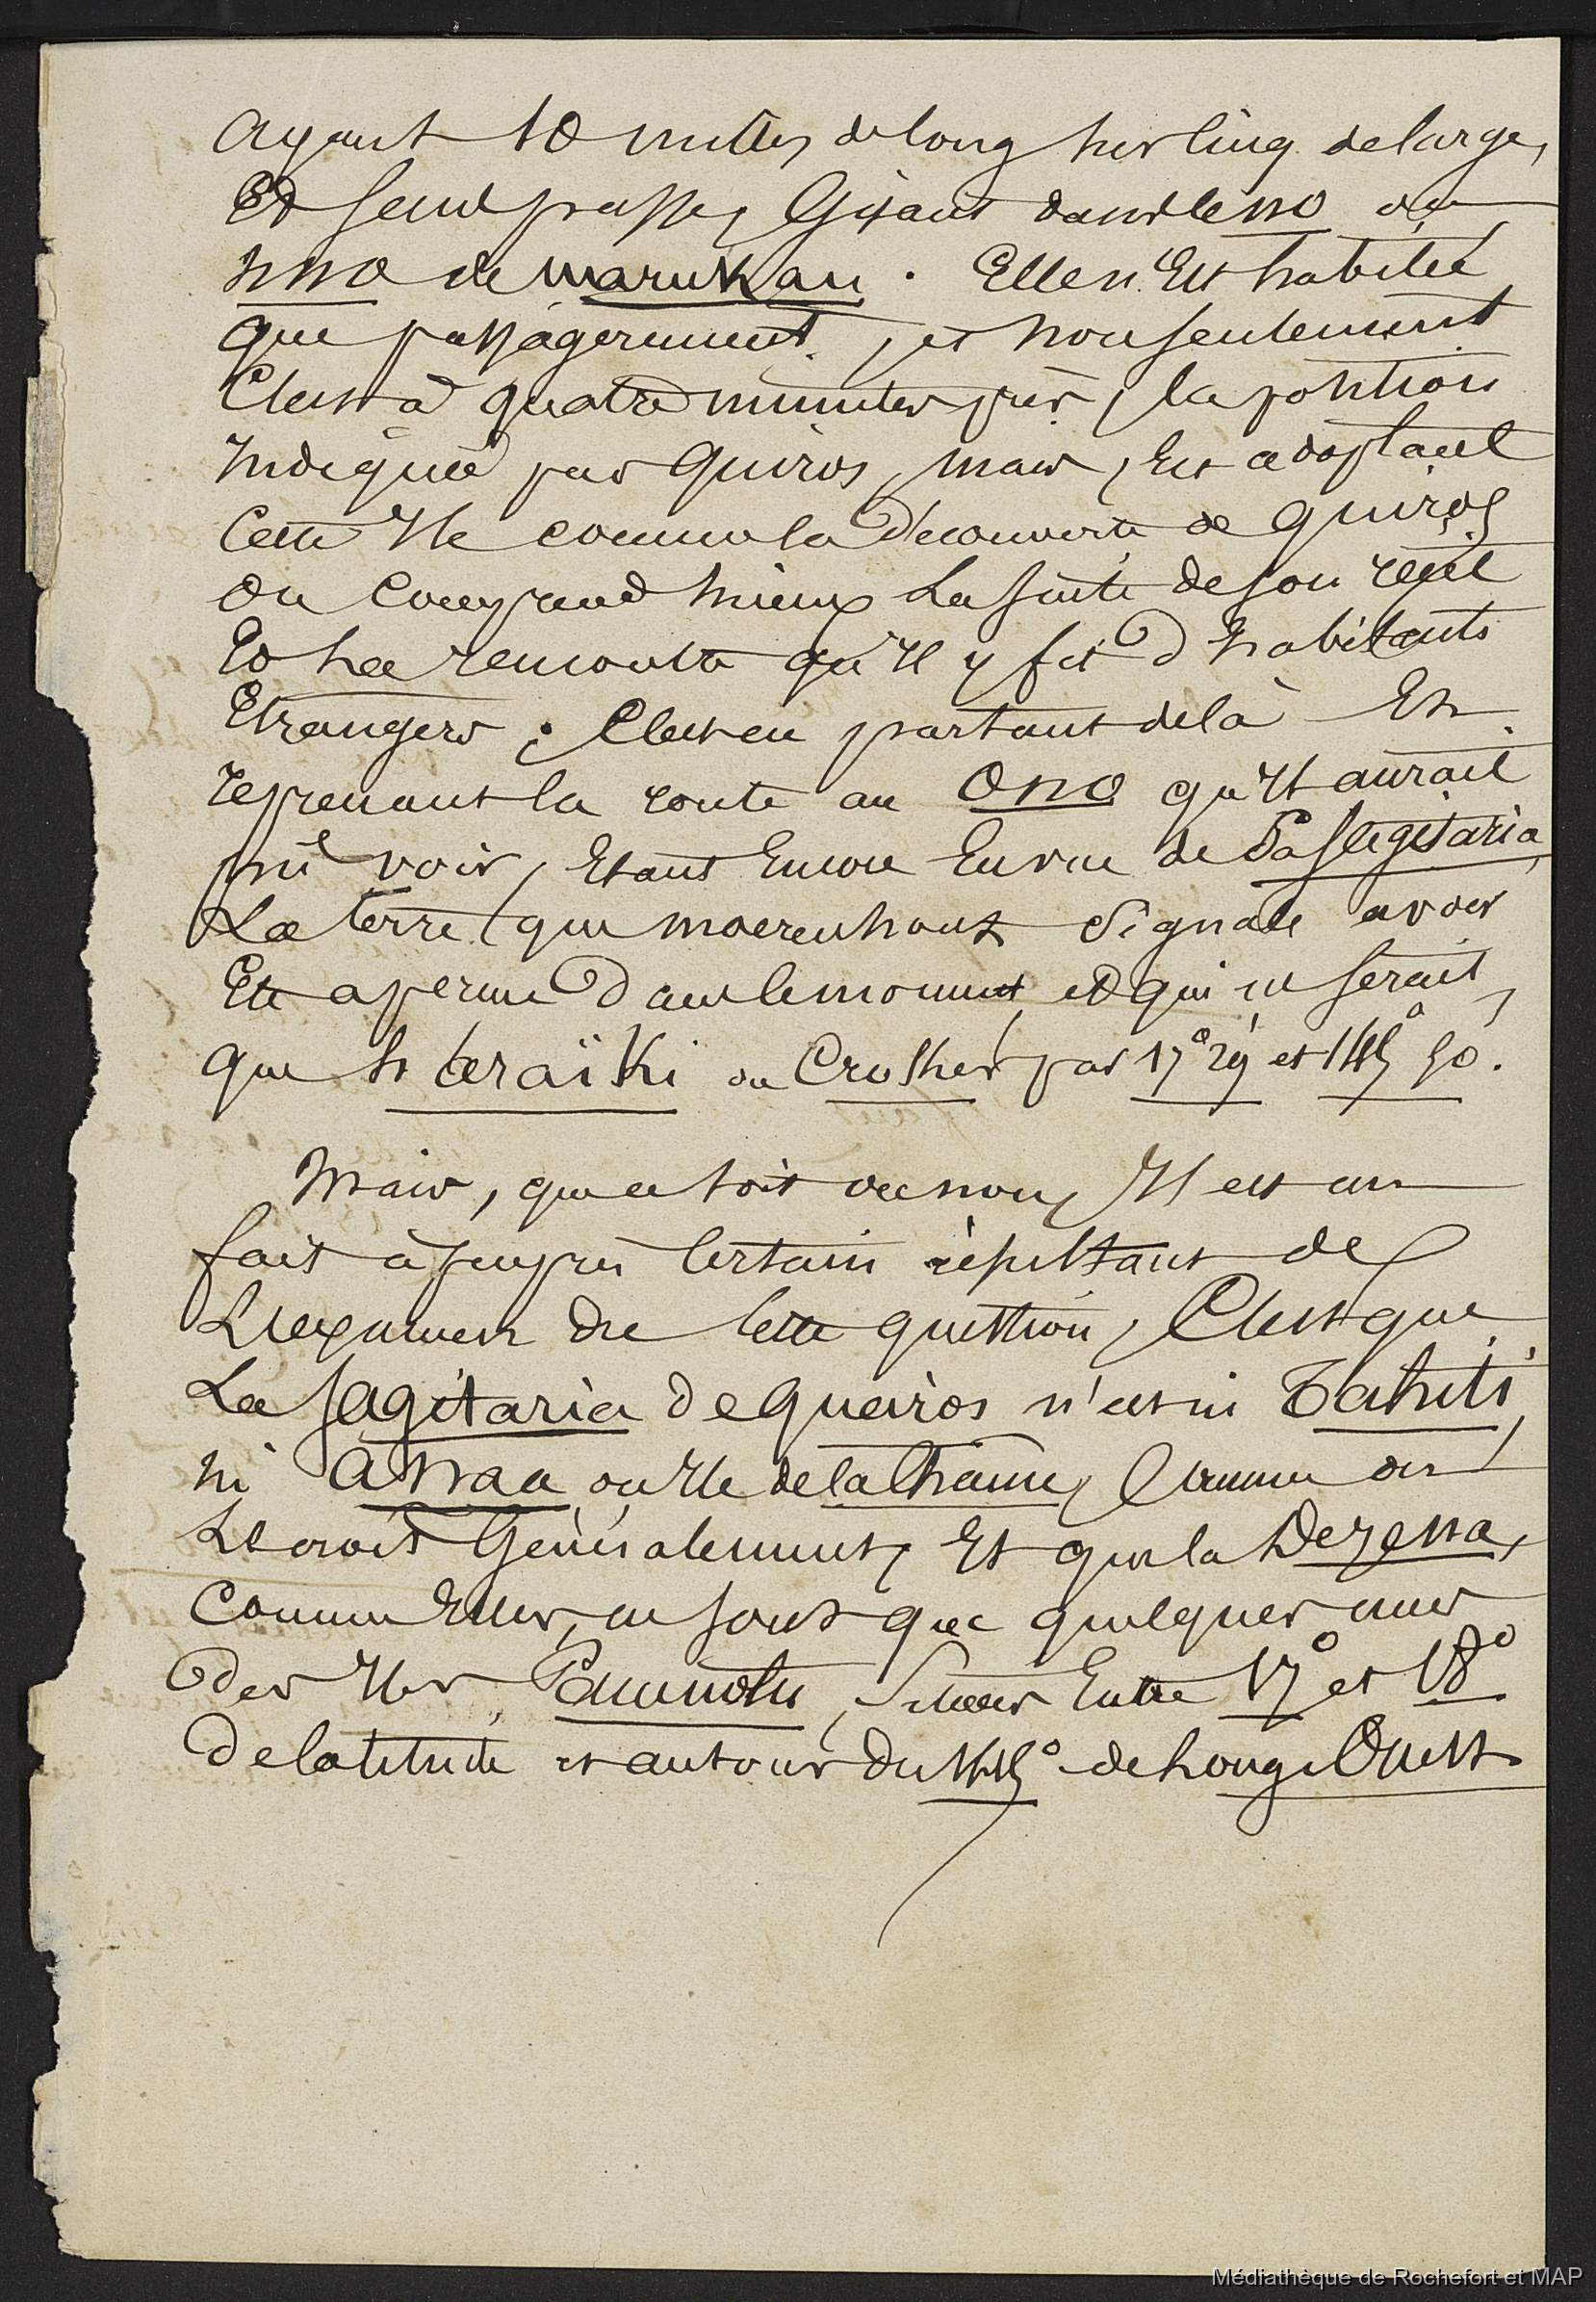 ayant 10 milles de long sur cinq de large,
Et sans passe, Gisant dans le NNO ou
NNO de marukau. Elle n'Est habitée
que passagèrement, et non seulement
C'est à quatre minutes près, la position
Indiquée par Quiros, mais, En adoptant
Cette Ile comme la Découverte de Quiros
On Comprend mieux La suite de son récit
Et La rencontre qu'Il y fit d'habitants
Etrangers; C'est en partant de là En
reprenant la route au ONO qu'Il aurait
pu voir, Etant Encore En vue de la Sagitaria
La terre que moerenhout Signale avoir
Eté aperçue Dans le moment et qui ne serait
que Haraïki ou Croker par 17° 29 et 145° 50.
Mais, que ce soit ou non, Il est un
fait à peu près Certain résultant de
L'examen de Cette question, C'est que
La Sagitaria de Queiros n'est ni Tahiti,
ni Anaa ou Ile de la Chaine, Comme on
Le croit Généralement, Et que la Dezena,
Comme Elles, ne sont que quelques unes
Des Iles Paumotu, Situées Entre 17° et 18°
De latitude et autour du 145° de Long. Ouest
Médiathèque de Rochefort et MAP